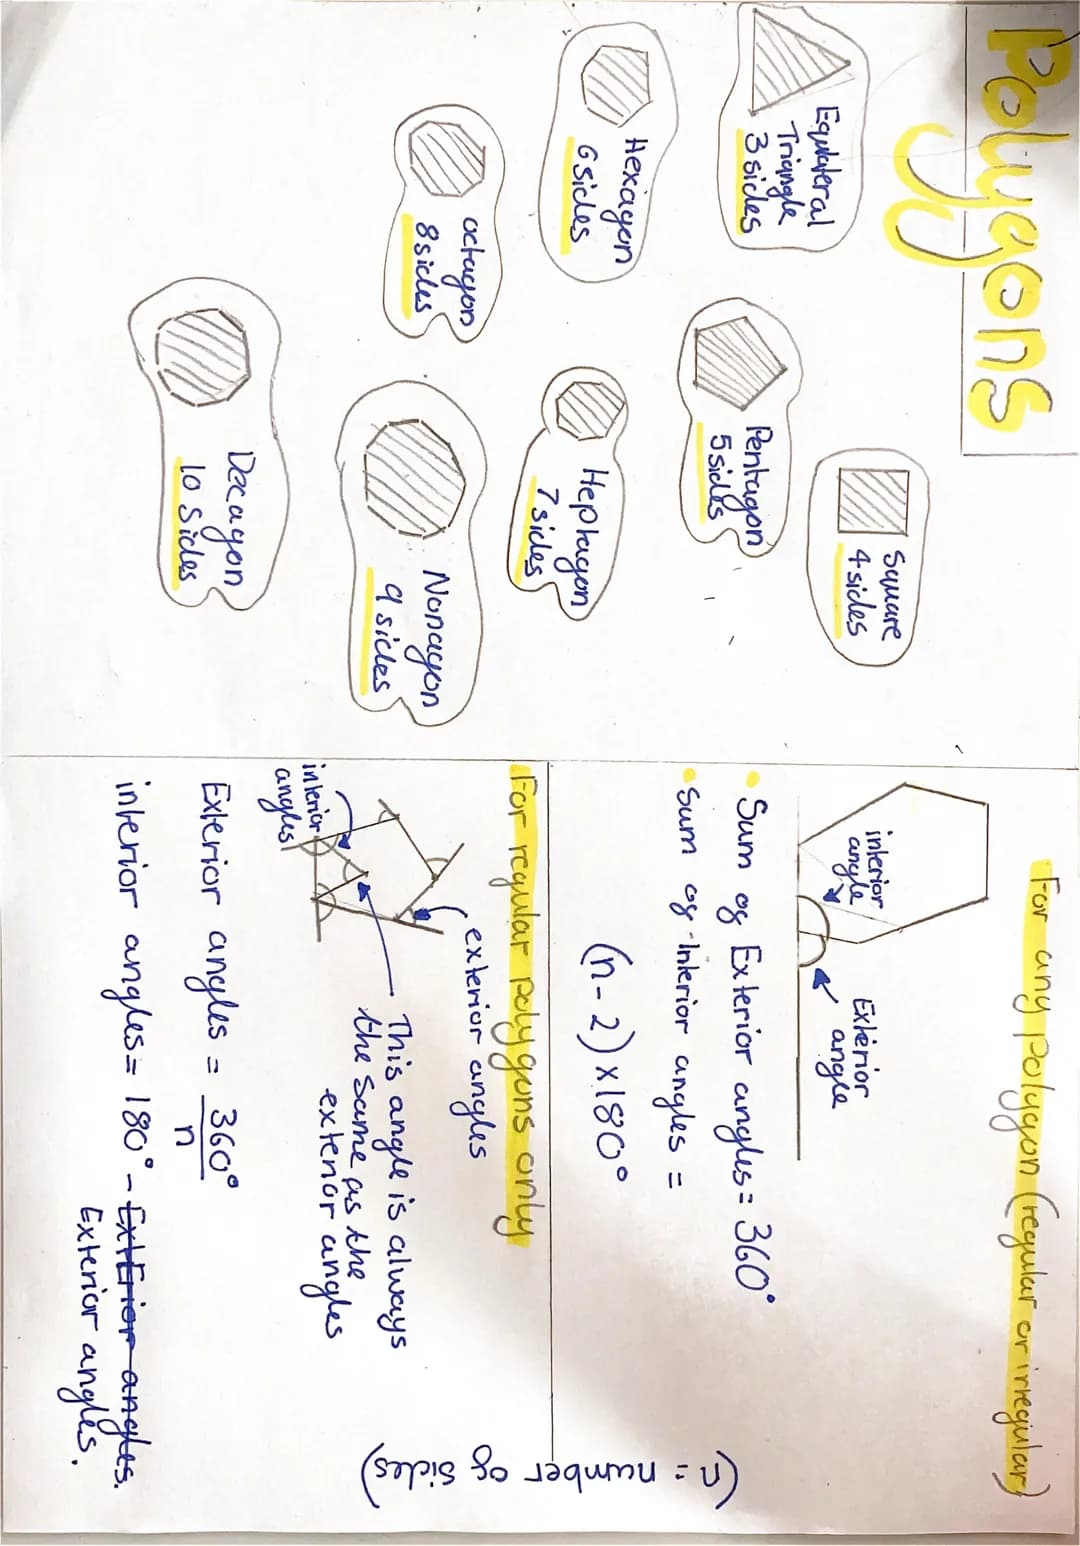 Polygons
Equilateral
Triangle
3 sides
Square
4 sides
Hexagon
6 sides
Pentagon
5 sides
octagon
8 sides
Heptagon
7 sides
Nonagon
9 sides
Decagon
10 sides
For any polygon (regular or irregular)
interior
angle
Exterior
angle
• Sum of Exterior angles = 360°
• Sum of Interior angles =
(n - 2) x 180°
(n = number of sides)
For regular polygons only
exterior angles
interior
angles
This angle is always
the same as the
exterior angles
Exterior angles = 360°
n
interior angles = 180° - Exterior angles.
Exterior angles.